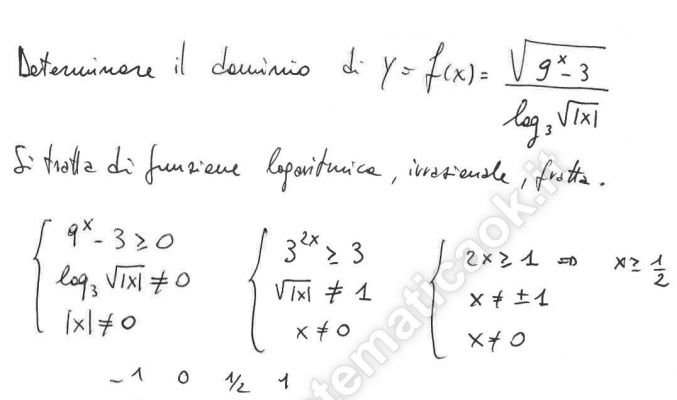 Determinare il dominio di y = f(x) = √(9^x - 3) / log₃ √|x|
Si tratta di funzione logaritmica, irrazionale, fratta.
{ 9^x - 3 ≥ 0 { 3^2x ≥ 3 { 2x ≥ 1 ⇒ x ≥ 1/2
log₃ √|x| ≠ 0 √|x| ≠ 1 x ≠ ±1
|x| ≠ 0 x ≠ 0 x ≠ 0
-1 0 1/2 1
tematicaok.it